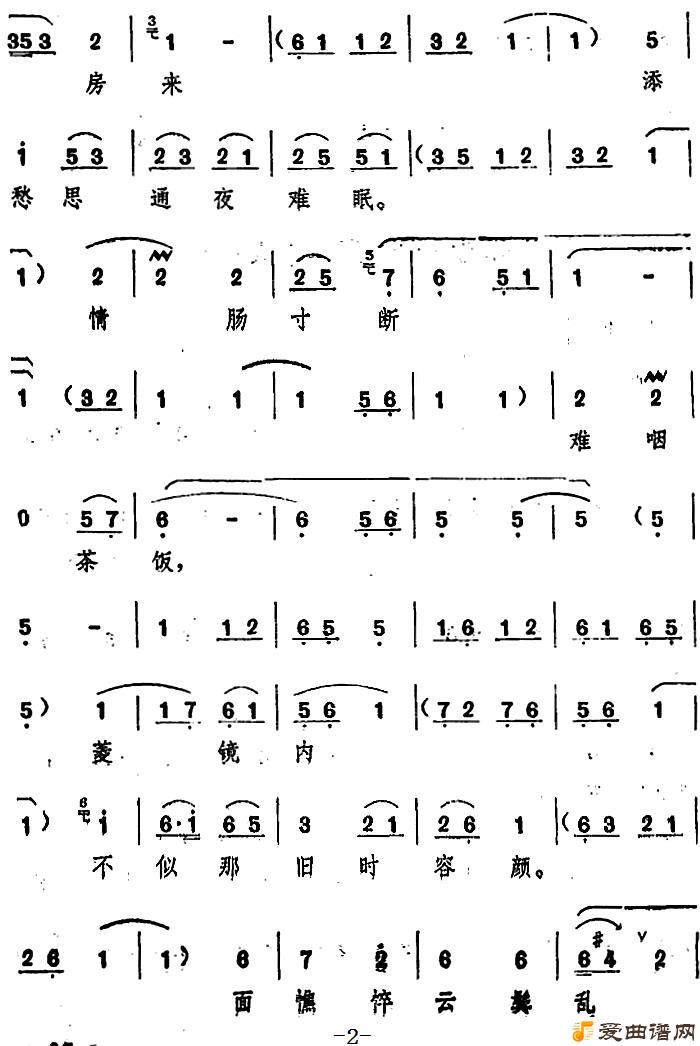 353 2 | 1 - | ( 6 1 1 2 | 3 2 1 | 1 ) 5 |
房 来 添
i 5 3 | 2 3 2 1 | 2 5 5 1 | ( 3 5 1 2 | 3 2 1 |
愁 思 通 夜 难 眠。
1 ) 2 | 2 2 | 2 5 7 | 6 5 1 | 1 - |
情 肠 寸 断
1 ( 3 2 | 1 1 | 1 5 6 | 1 1 ) | 2 2 |
难 咽
0 5 7 | 6 - | 6 5 6 | 5 5 | 5 ( 5 |
茶 饭，
5 - | 1 1 2 | 6 5 5 | 1 6 1 2 | 6 1 6 5 |
5 ) 1 | 1 7 6 1 | 5 6 1 | ( 7 2 7 6 | 5 6 1 |
菱 镜 内
1 ) i | 6 · i 6 5 | 3 2 1 | 2 6 1 | ( 6 3 2 1 |
不 似 那 旧 时 容 颜。
2 6 1 | 1 ) 6 | 7 2 | 6 6 | 6 #4 2 |
面 憔 悴 云 鬓 乱
-2-
爱曲谱网